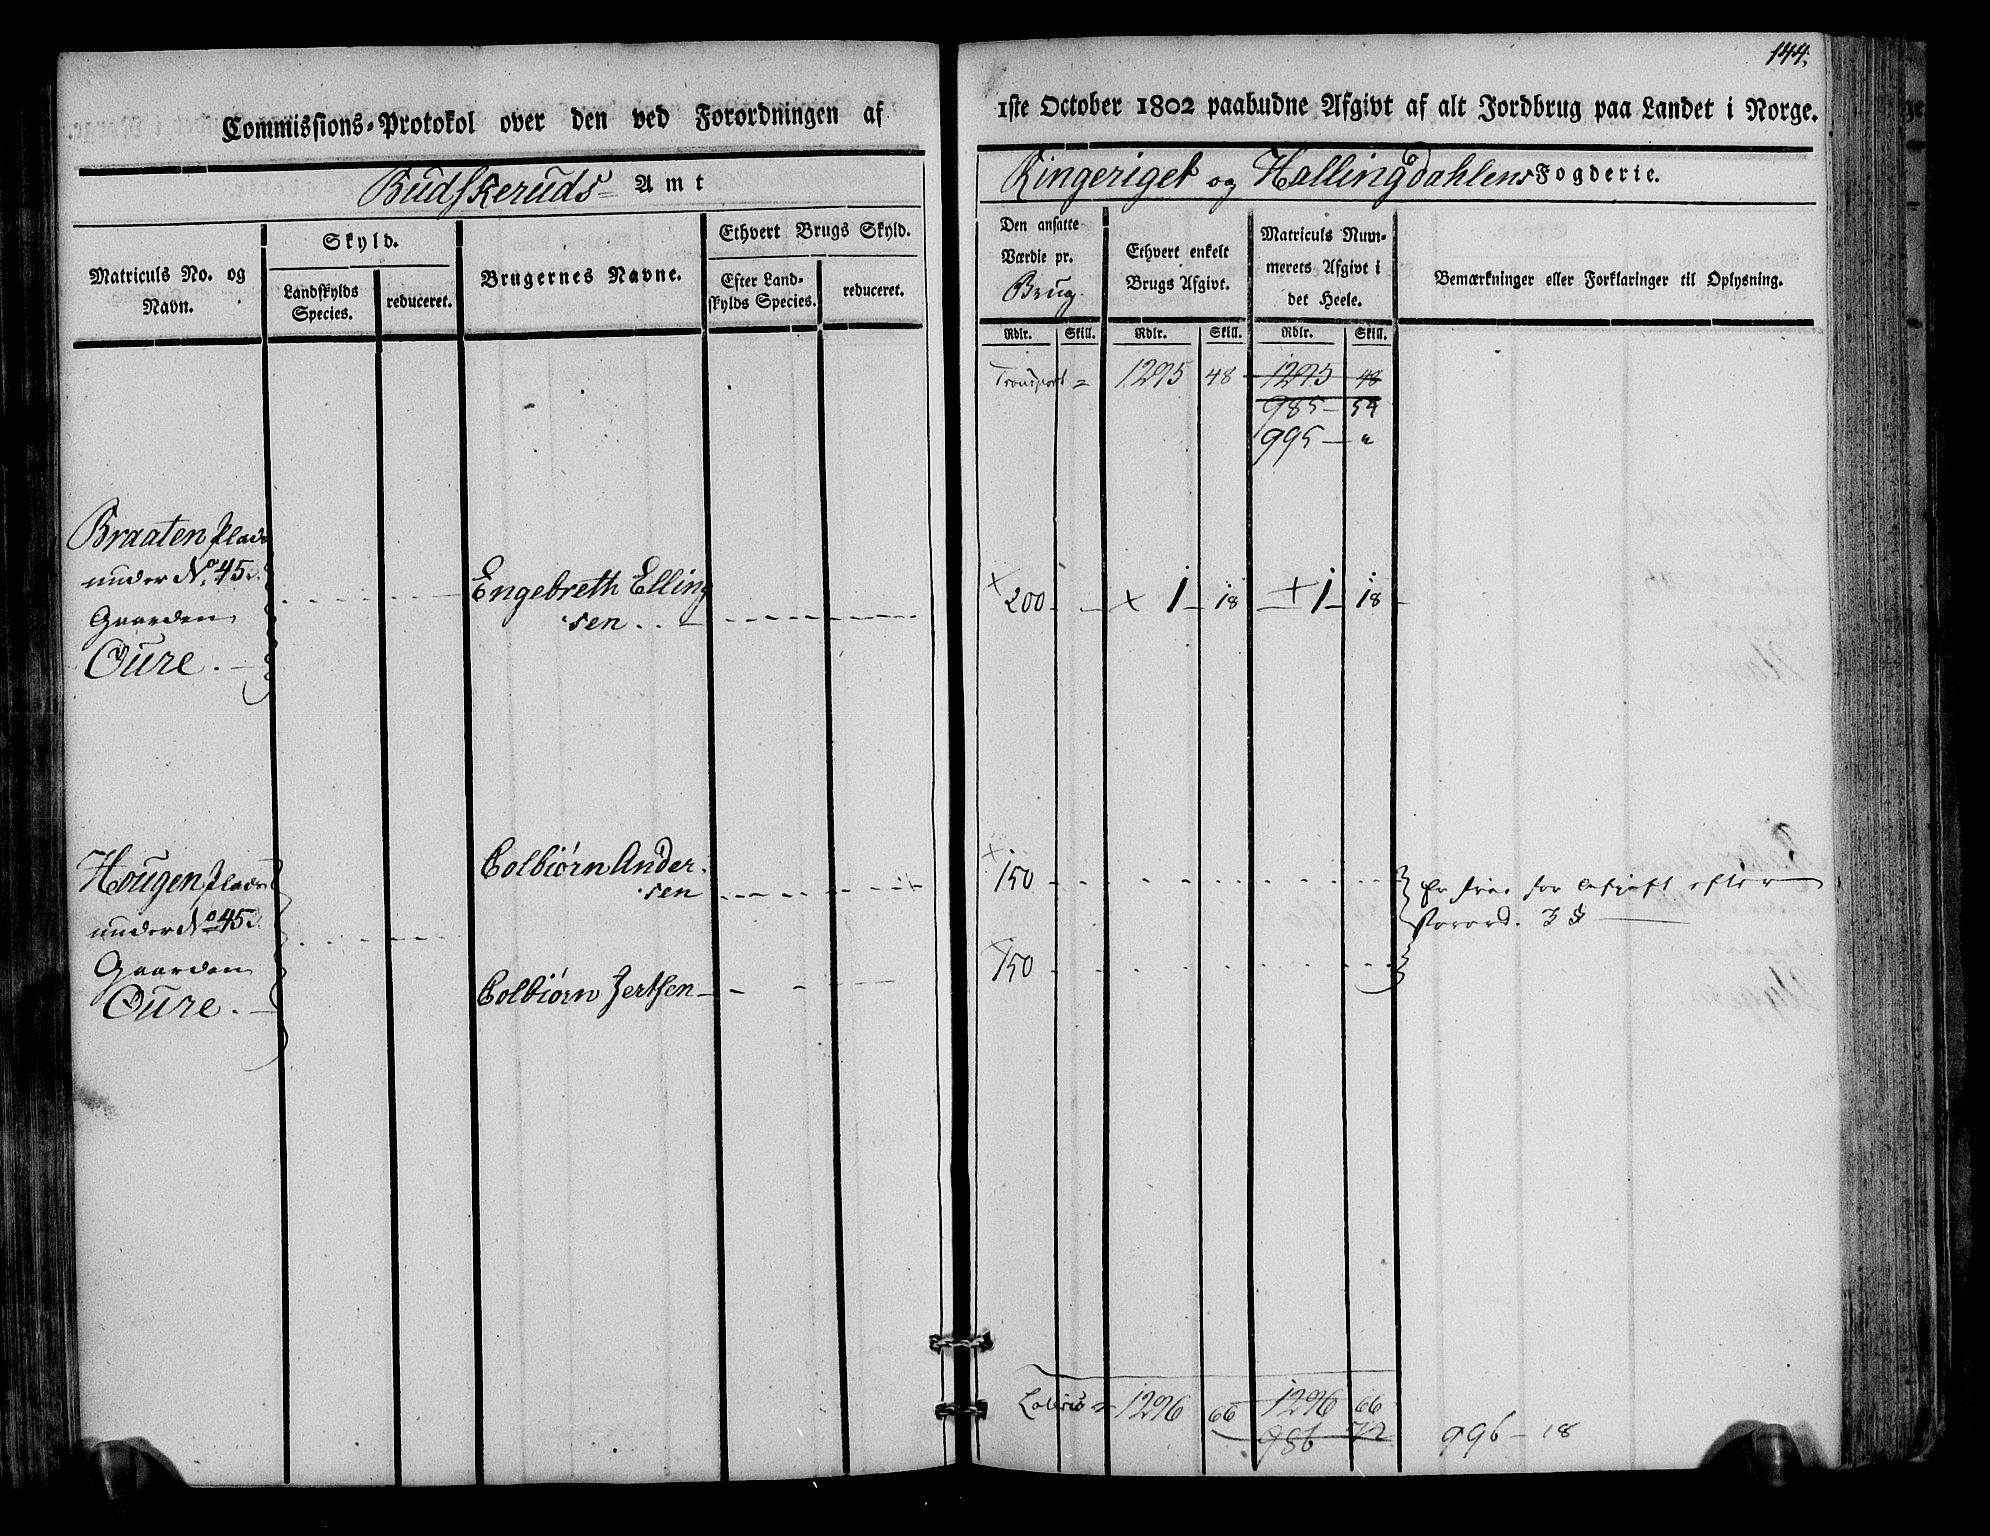 144.
Commissions-Protokol over den ved Forordningen af
1ste October 1802 paabudne Afgivt af alt Jordbrug paa Landet i Norge.
Budskeruds Amt
Ringeriget og Hallingdahlens Fogderie.
Matriculs No. og
Navn.
Skyld.
Landskylds
Species.
reduceret.
Brugernes Navne.
Ethvert Brugs Skyld.
Efter Land-
skylds Species.
reduceret.
Den ansatte
Værdie pr.
Brug.
Ethvert enkelt
Brugs Afgivt.
Matriculs Num-
merets Afgivt i
det Heele.
Bemærkninger eller Forklaringer til Oplysning.
Rdlr. Skill. Rdlr. Skill. Rdlr. Skill.
Transport = 1295 48 1295 48
985 - 54
995 - "
Braaten Plads
under No. 45
Gaarden
Oure.
Engebreth Elling
sen
200 1 18 1 18
Hougen Plads
under No 45
Gaarden
Oure.
Colbiørn Ander-
sen
150
Er frie for Afgift efter
Forord. 3 §
Colbiørn Jertsen
150
Lateris = 1296 66 1296 66
986 72
996 - 18